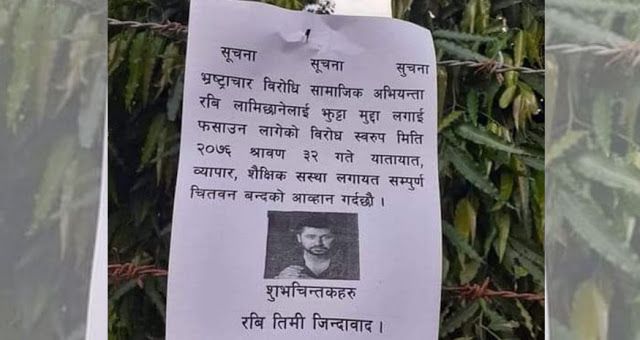 सूचना सूचना सुचना
भ्रष्ट्राचार विरोधि सामाजिक अभियन्ता
रबि लामिछानेलाई झुट्टा मुद्दा लगाई
फसाउन लागेको विरोध स्वरुप मिति
२०७६ श्रावण ३२ गते यातायात,
व्यापार, शैक्षिक सस्था लगायत सम्पुर्ण
चितवन बन्दको आव्हान गर्दछौ ।
शुभचिन्तकहरु
रबि तिमी जिन्दावाद ।